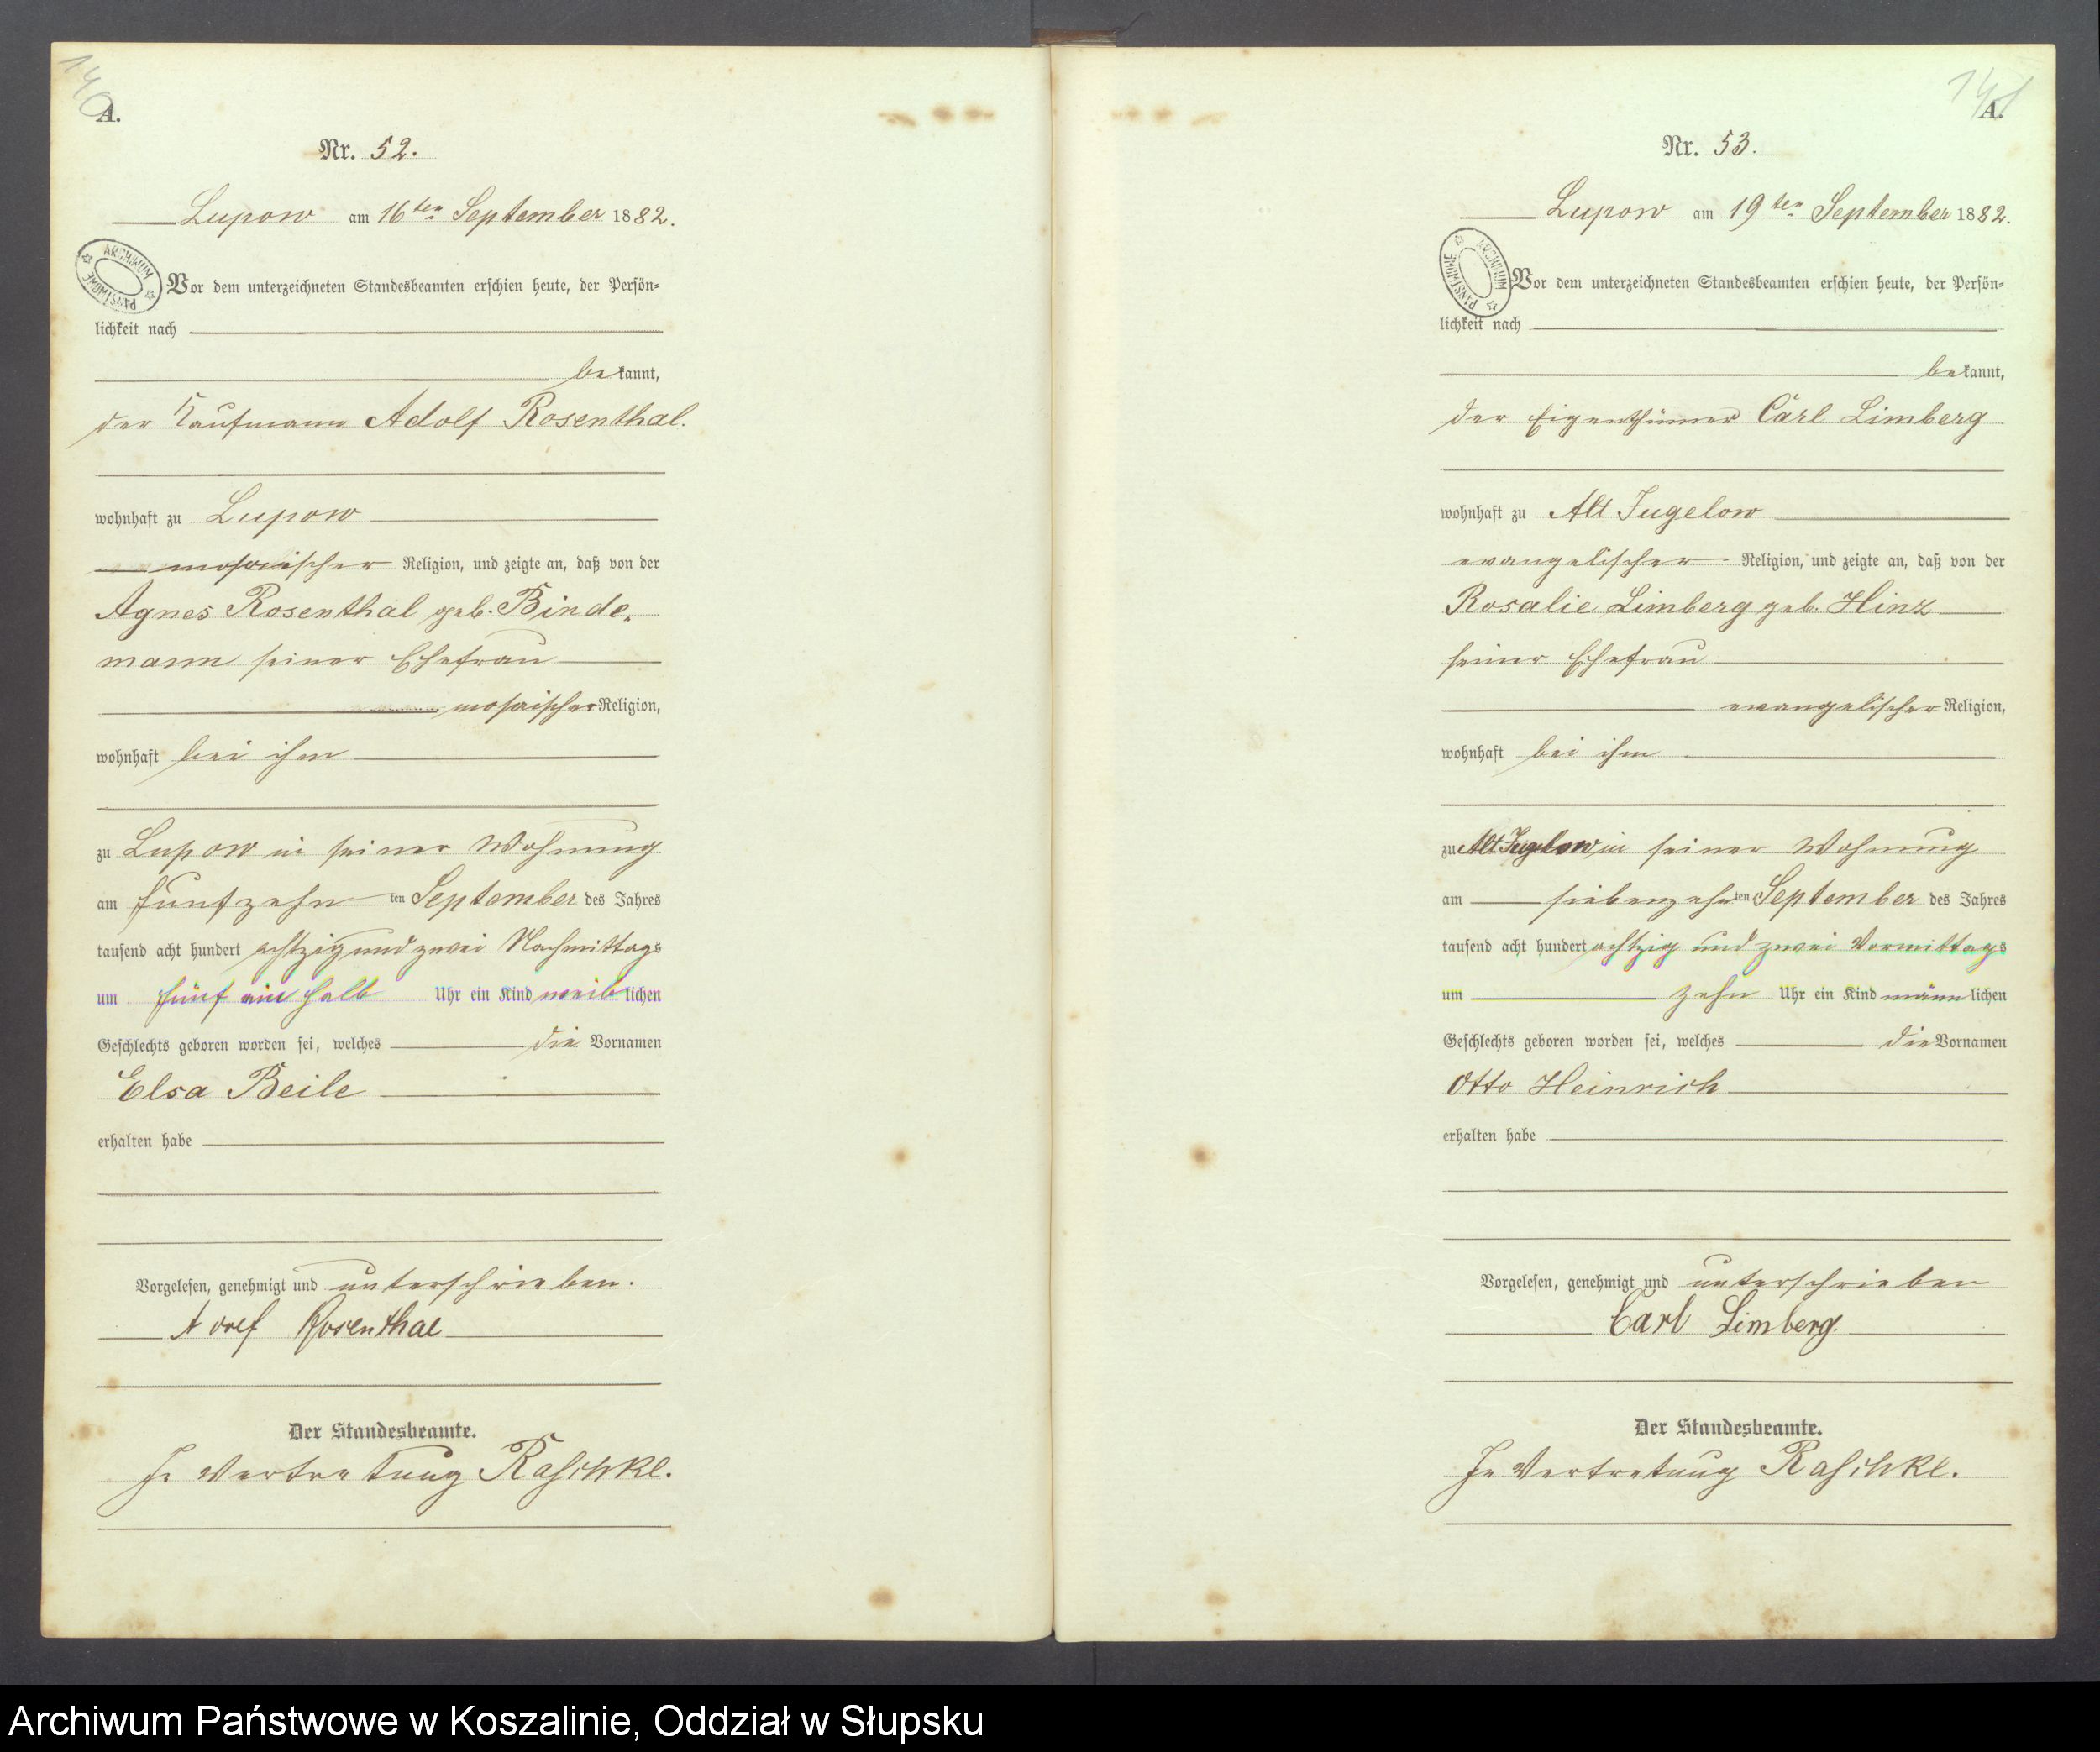 140
A.
Nr. 52.
Lupow am 16ten September 1882.
ARCHIWUM PAŃSTWOWE
Vor dem unterzeichneten Standesbeamten erschien heute, der Persön-
lichkeit nach
bekannt,
der Kaufmann Adolf Rosenthal.
wohnhaft zu Lupow
mosaischer Religion, und zeigte an, daß von der
Agnes Rosenthal geb. Binde-
mann seiner Ehefrau
mosaischer Religion,
wohnhaft bei ihm
zu Lupow in seiner Wohnung
am fünfzehnten September des Jahres
tausend acht hundert achtzig und zwei Nachmittags
um fünf ein halb Uhr ein Kind weiblichen
Geschlechts geboren worden sei, welches die Vornamen
Elsa Beile
erhalten habe
Vorgelesen, genehmigt und unterschrieben.
Adolf Rosenthal
Der Standesbeamte.
In Vertretung Raschke.
141
A.
Nr. 53.
Lupow am 19ten September 1882.
ARCHIWUM PAŃSTWOWE
Vor dem unterzeichneten Standesbeamten erschien heute, der Persön-
lichkeit nach
bekannt,
der Eigenthümer Carl Limberg
wohnhaft zu Alt Jugelow
evangelischer Religion, und zeigte an, daß von der
Rosalie Limberg geb. Hinz
seiner Ehefrau
evangelischer Religion,
wohnhaft bei ihm
zu Alt Jugelow in seiner Wohnung
am siebenzehnten September des Jahres
tausend acht hundert achtzig und zwei Vormittags
um zehn Uhr ein Kind männlichen
Geschlechts geboren worden sei, welches die Vornamen
Otto Heinrich
erhalten habe
Vorgelesen, genehmigt und unterschrieben
Carl Limberg.
Der Standesbeamte.
In Vertretung Raschke.
Archiwum Państwowe w Koszalinie, Oddział w Słupsku